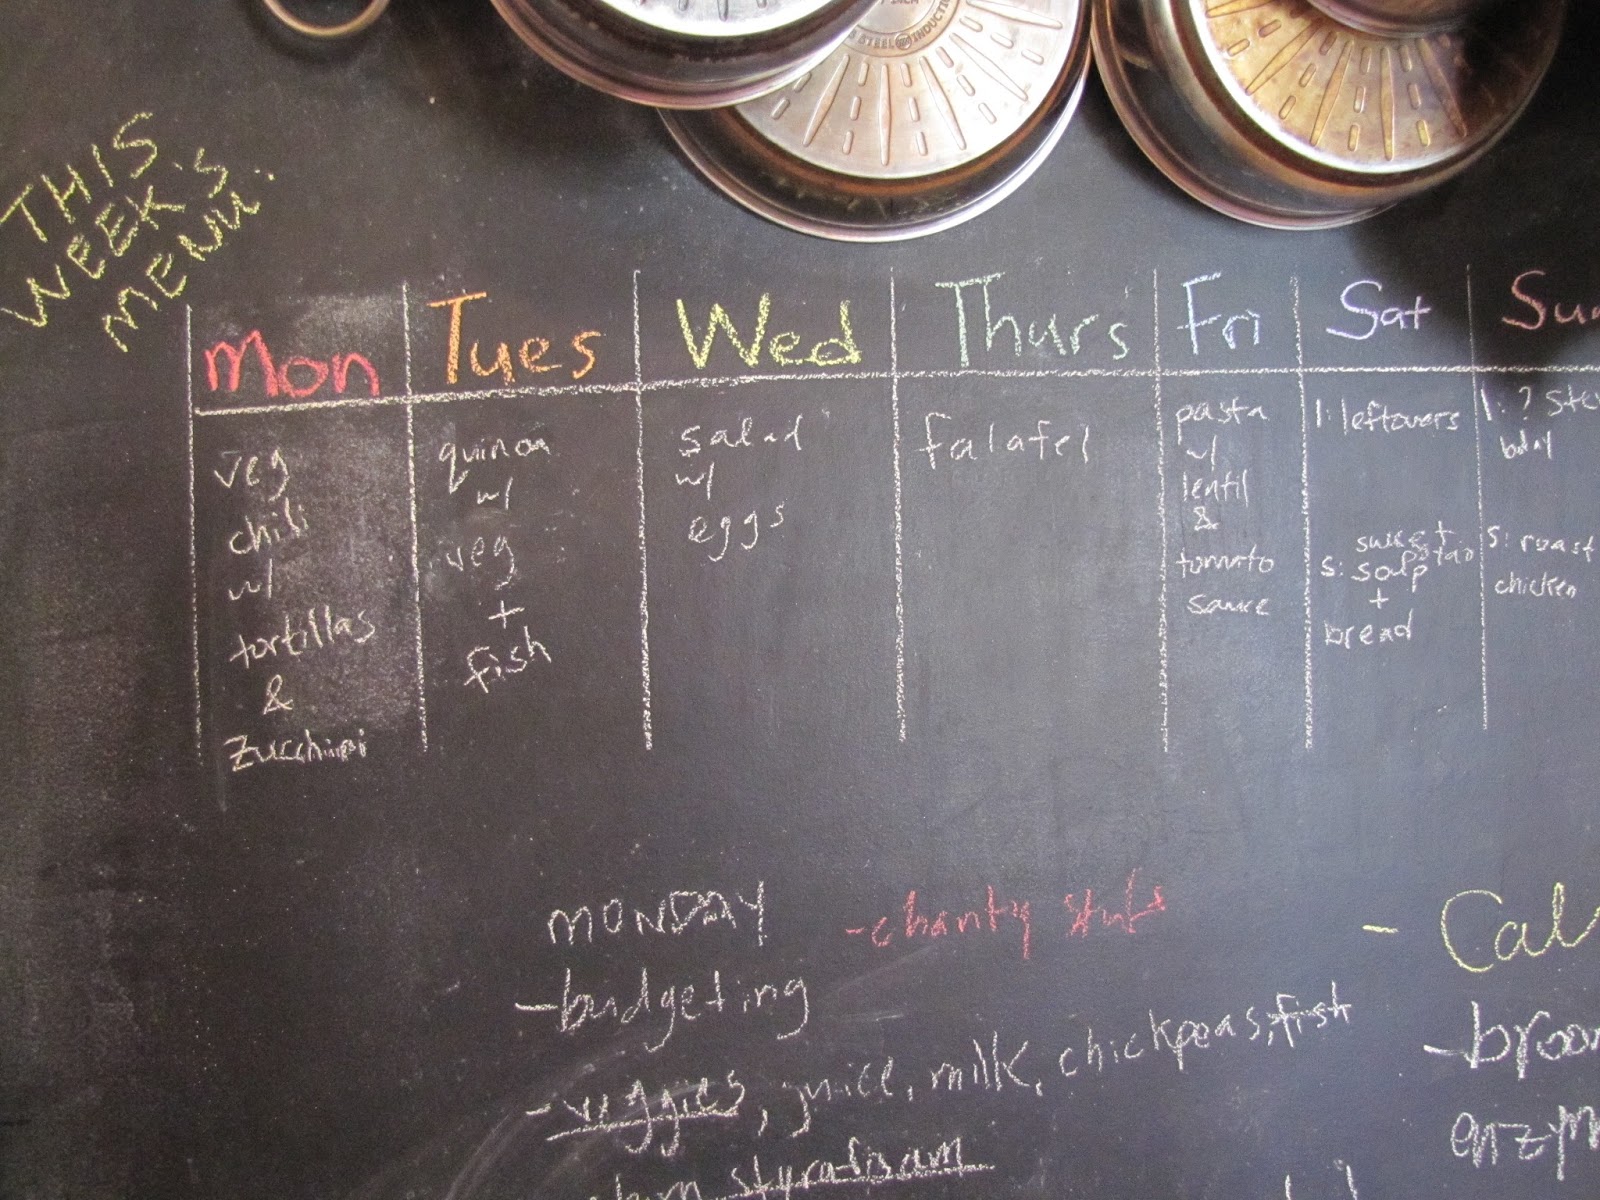 STEEL INDUCTION
THIS
WEEK'S
MENU.
Mon
Tues
Wed
Thurs
Fri
Sat
Sun
veg
chili
w/
tortillas
&
zucchini
quinoa
w/
veg
+
fish
salad
w/
eggs
falafel
pasta
w/
lentil
&
tomato
sauce
l: leftovers
sweet potato
s: soup
+
bread
l: ?
s: roast
chicken
MONDAY
-budgeting
-veggies, juice, milk, chickpeas, fish
styrofoam
-charity stuff
- Cal
-broom
enzym